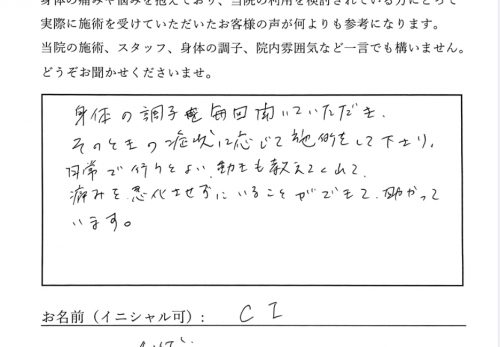 身体の痛みや悩みを抱えており、当院の利用を検討されている方にとって
実際に施術を受けていただいたお客様の声が何よりも参考になります。
当院の施術、スタッフ、身体の調子、院内雰囲気など一言でも構いません。
どうぞお聞かせくださいませ。
身体の調子を毎回聞いていただき、
そのときの症状に応じて施術をして下さり、
日常で行うとよい動きも教えてくれて
痛みを悪化させずにいることができて、助かって
います。
お名前（イニシャル可）: C I